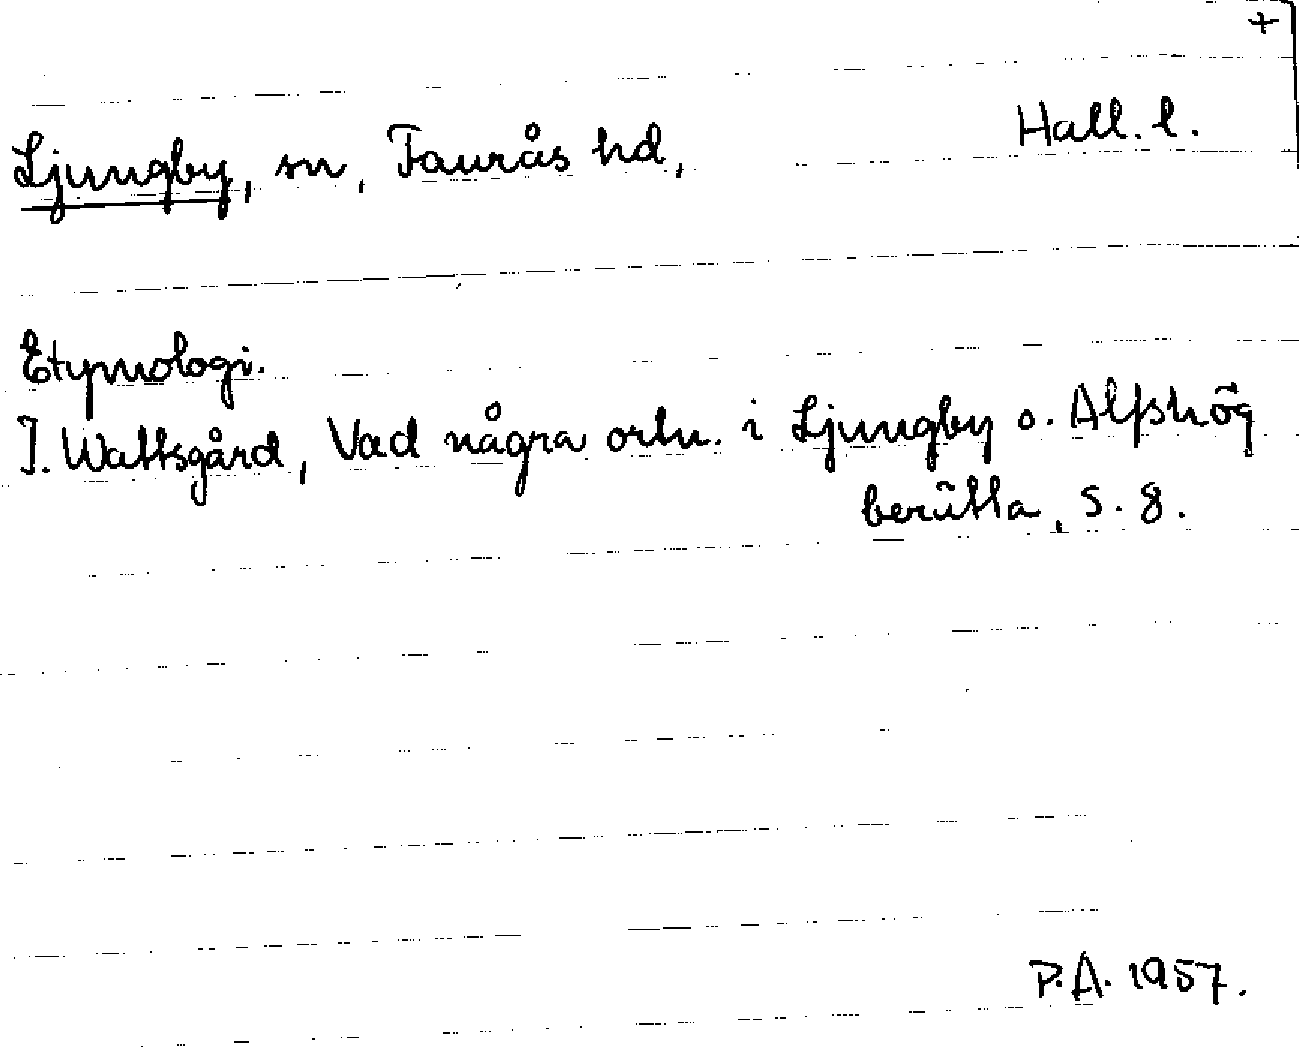 +
Ljungby, sn, Faurås hd, Hall. l.
Etymologi.
J. Wattsgård, Vad några ortn. i Ljungby o. Alfshög
berätta, s. 8.
P.A. 1957.